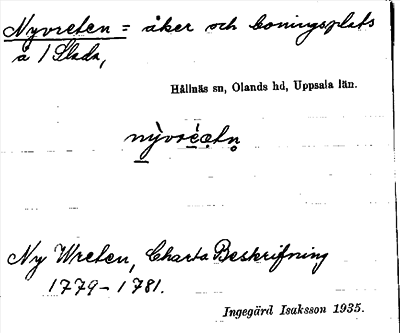 Nyvreten = åker och boningsplats
å / Slada,
Hållnäs sn, Olands hd, Uppsala län.
Ny Wreten, Charta Beskrifning
1779-1781.
Ingegärd Isaksson 1935.